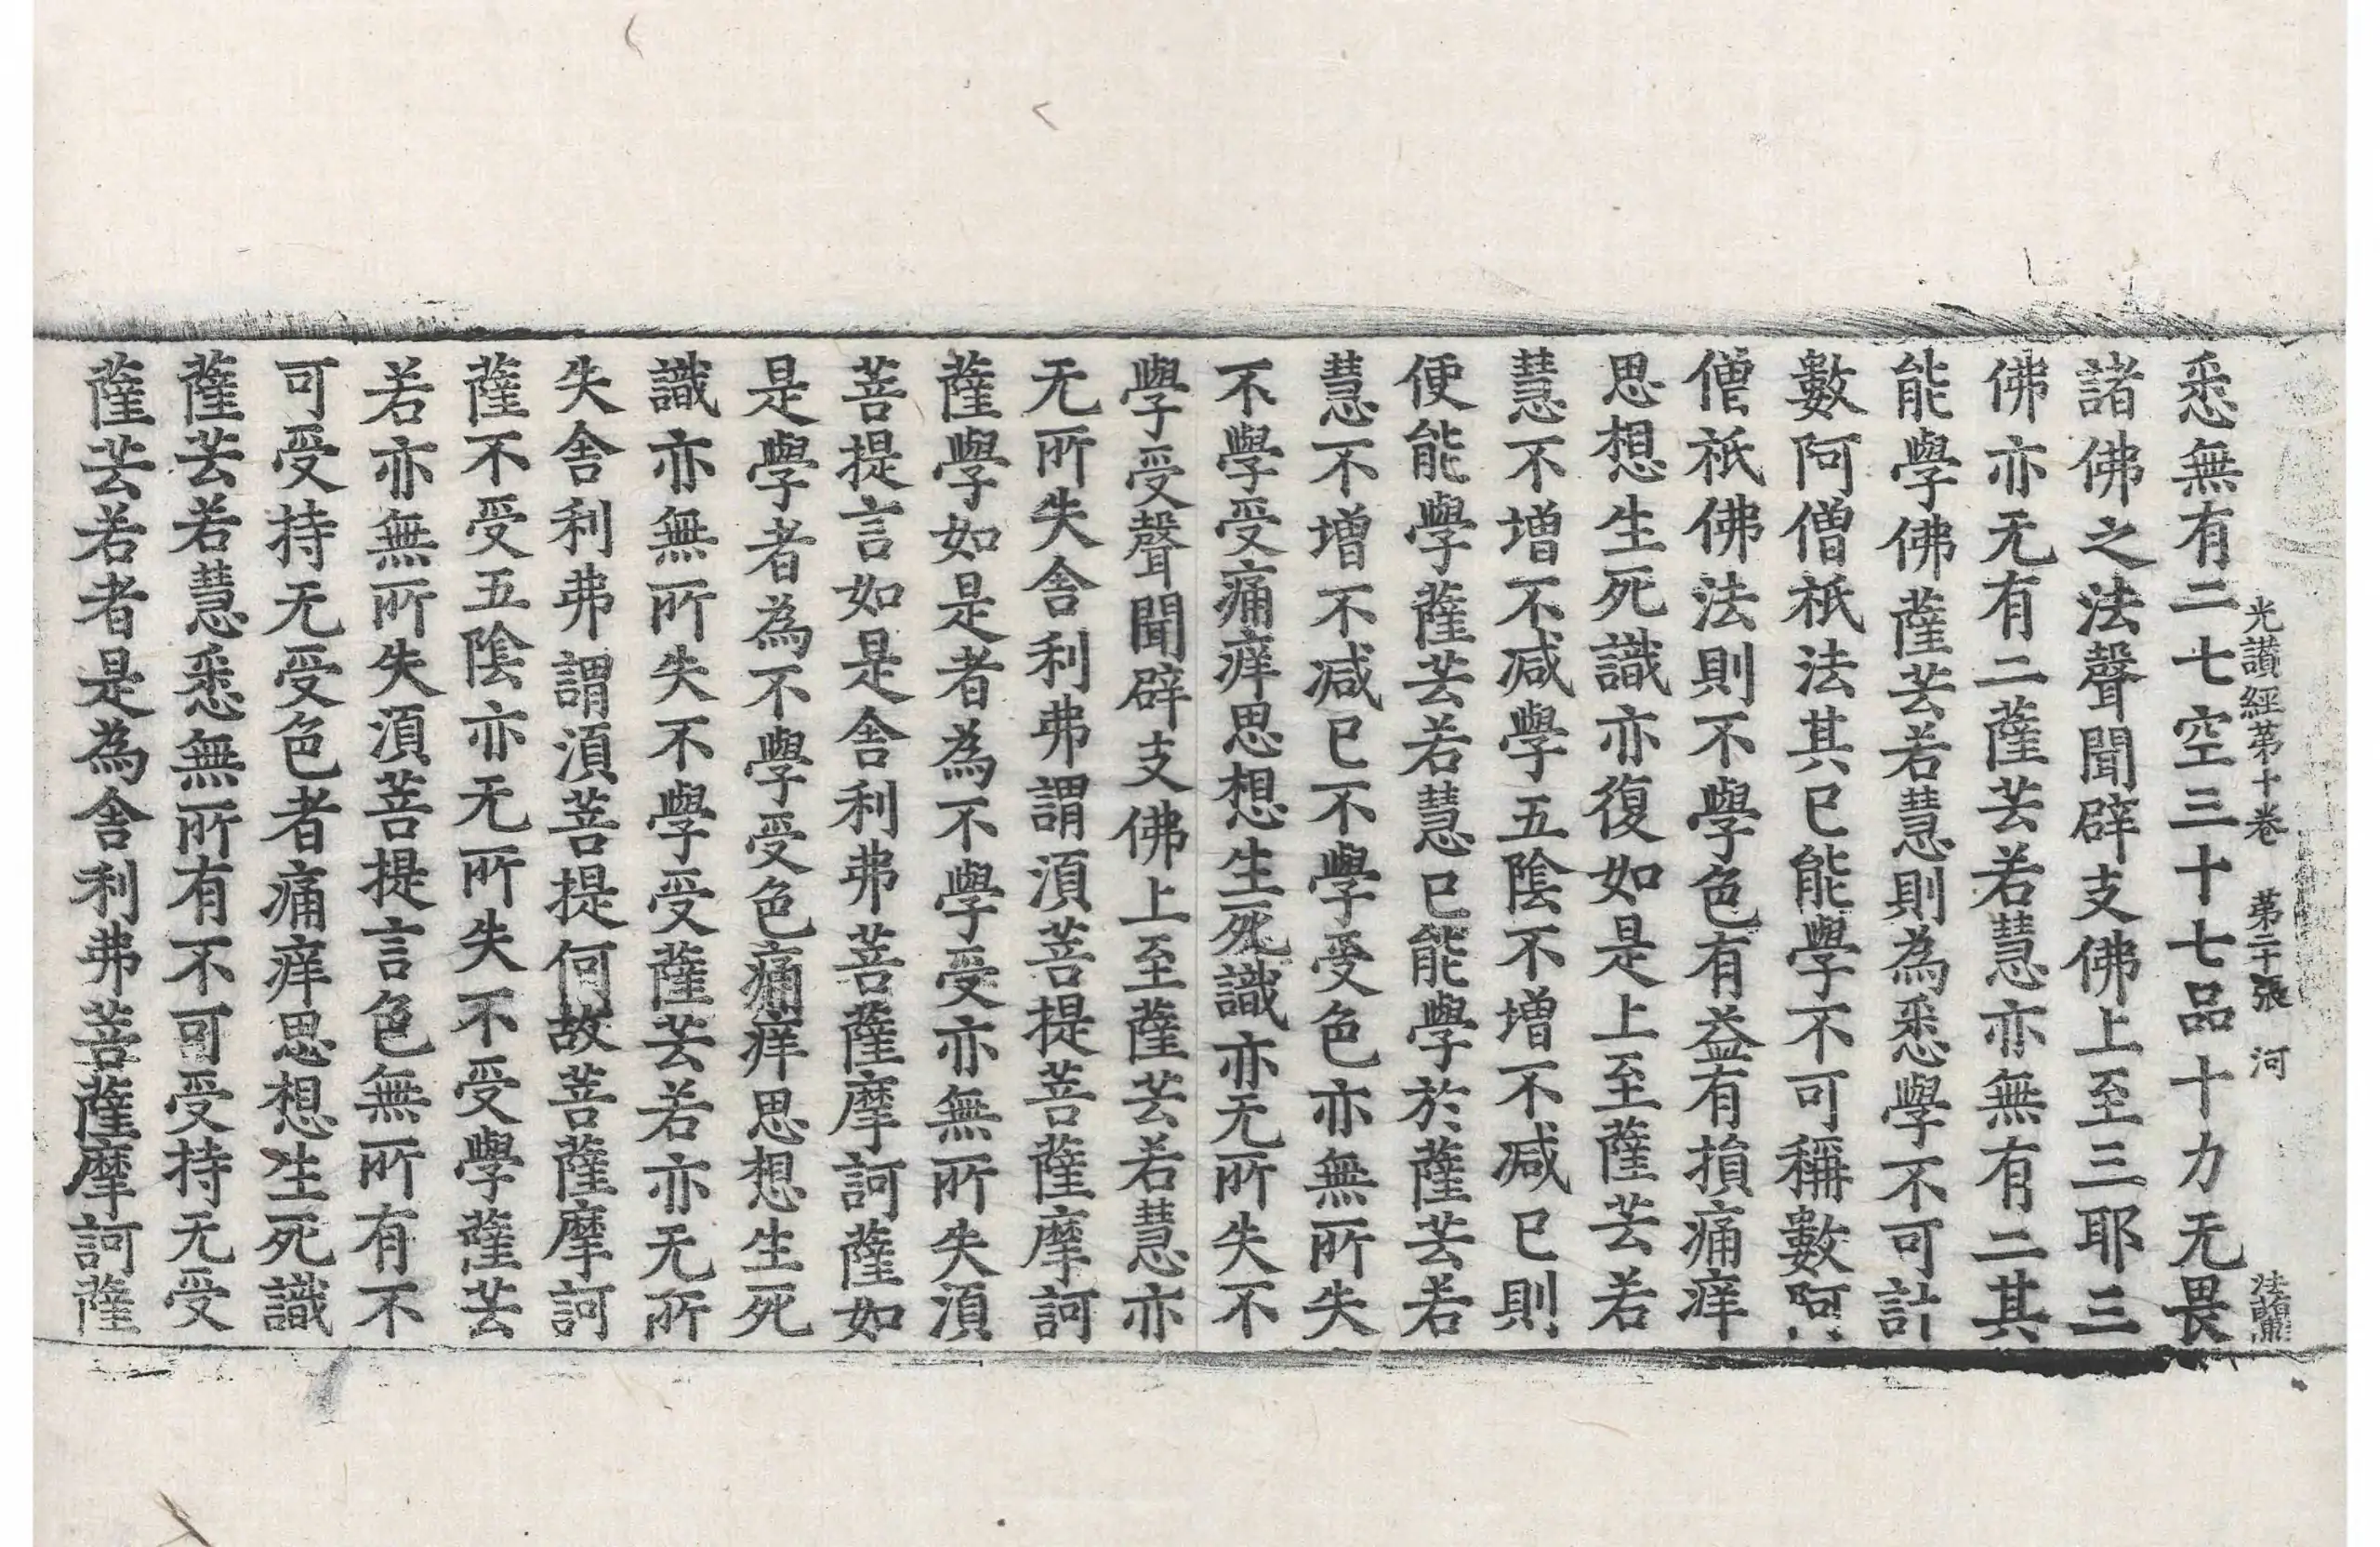 光讚經第十卷　第二十張　河
悉無有二七空三十七品十力无畏
諸佛之法聲聞辟支佛上至三耶三
佛亦无有二薩芸若慧亦無有二其
能學佛薩芸若慧則為悉學不可計
數阿僧祇法其已能學不可稱數阿
僧祇佛法則不學色有益有損痛痒
思想生死識亦復如是上至薩芸若
慧不增不減學五陰不增不減已則
便能學薩芸若慧已能學於薩芸若
慧不增不減已不學受色亦無所失
不學受痛痒思想生死識亦无所失不
學受聲聞辟支佛上至薩芸若慧亦
无所失舍利弗謂須菩提菩薩摩訶
薩學如是者為不學受亦無所失須
菩提言如是舍利弗菩薩摩訶薩如
是學者為不學受色痛痒思想生死
識亦無所失不學受薩芸若亦无所
失舍利弗謂須菩提何故菩薩摩訶
薩不受五陰亦无所失不受學薩芸
若亦無所失須菩提言色無所有不
可受持无受色者痛痒思想生死識
薩芸若慧悉無所有不可受持无受
薩芸若者是為舍利弗菩薩摩訶薩